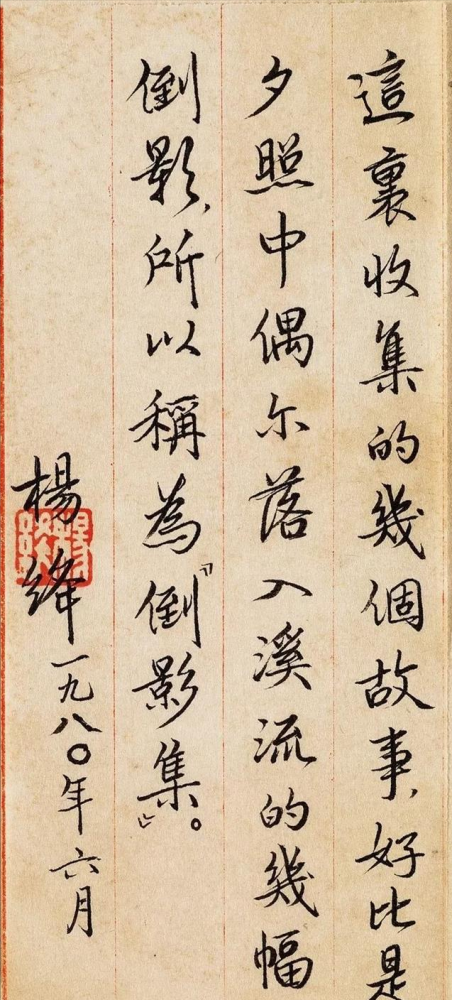 這裏收集的幾個故事，好比是
夕照中偶尔落入溪流的幾幅
倒影，所以稱為『倒影集』。
楊絳 一九八〇年六月